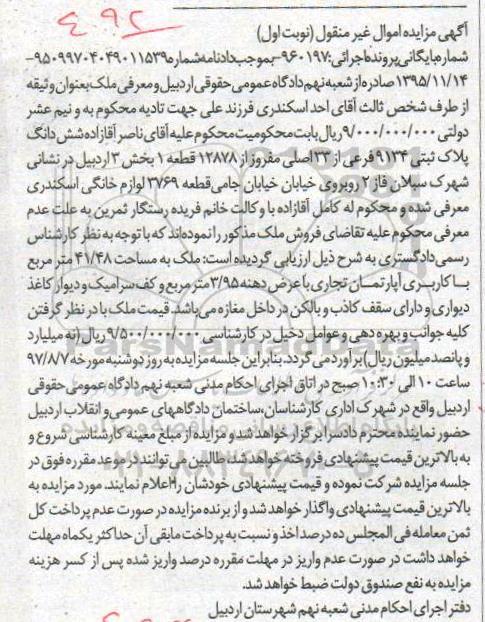 ۴۹۲
آگهی مزایده اموال غیر منقول (نوبت اول)
شماره بایگانی پرونده اجرائی: ۹۶۰۱۹۷- بموجب دادنامه شماره ۹۵۰۹۹۷۰۴۰۴۹۰۱۱۵۳۹-
۱۳۹۵/۱۱/۱۴ صادره از شعبه نهم دادگاه عمومی حقوقی اردبیل و معرفی ملک بعنوان وثیقه
از طرف شخص ثالث آقای احد اسکندری فرزند علی جهت تادیه محکوم به و نیم عشر
دولتی ۹/۰۰۰/۰۰۰/۰۰۰ ریال بابت محکومیت محکوم علیه آقای ناصر آقازاده شش دانگ
پلاک ثبتی ۹۱۳۴ فرعی از ۳۳ اصلی مفروز از ۱۲۸۷۸ قطعه ۱ بخش ۳ اردبیل در نشانی
شهرک سبلان فاز ۲ روبروی خیابان خیابان جامی قطعه ۳۷۶۹ لوازم خانگی اسکندری
معرفی شده و محکوم له کامل آقازاده با وکالت خانم فریده رستگار ثمرین به علت عدم
معرفی محکوم علیه تقاضای فروش ملک مذکور را نموده اند که با توجه به نظر کارشناس
رسمی دادگستری به شرح ذیل ارزیابی گردیده است: ملک به مساحت ۴۱/۴۸ متر مربع
با کاربری آپارتمان تجاری با عرض دهنه ۳/۹۵ متر مربع و کف سرامیک و دیوار کاغذ
دیواری و دارای سقف کاذب و بالکن در داخل مغازه می باشد. قیمت ملک با در نظر گرفتن
کلیه جوانب و بهره دهی و عوامل دخیل در کارشناسی ۹/۵۰۰/۰۰۰/۰۰۰ ریال (نه میلیارد
و پانصد میلیون ریال) برآورد می گردد. بنابراین جلسه مزایده به روز دوشنبه مورخه ۹۷/۸/۷
ساعت ۱۰ الی ۱۰:۳۰ صبح در اتاق اجرای احکام مدنی شعبه نهم دادگاه عمومی حقوقی
اردبیل واقع در شهرک اداری کارشناسان، ساختمان دادگاههای عمومی و انقلاب اردبیل
حضور نماینده محترم دادسرا برگزار خواهد شد و مزایده از مبلغ معینه کارشناسی شروع و
به بالاترین قیمت پیشنهادی فروخته خواهد شد. طالبین می توانند در موعد مقرره فوق در
جلسه مزایده شرکت نموده و قیمت پیشنهادی خودشان را اعلام نمایند. مورد مزایده به
بالاترین قیمت پیشنهادی واگذار خواهد شد و از برنده مزایده در صورت عدم پرداخت کل
ثمن معامله فی المجلس ده درصد اخذ و نسبت به پرداخت مابقی آن حداکثر یکماه مهلت
خواهد داشت در صورت عدم واریز در مهلت مقرره درصد واریز شده پس از کسر هزینه
مزایده به نفع صندوق دولت ضبط خواهد شد.
دفتر اجرای احکام مدنی شعبه نهم شهرستان اردبیل